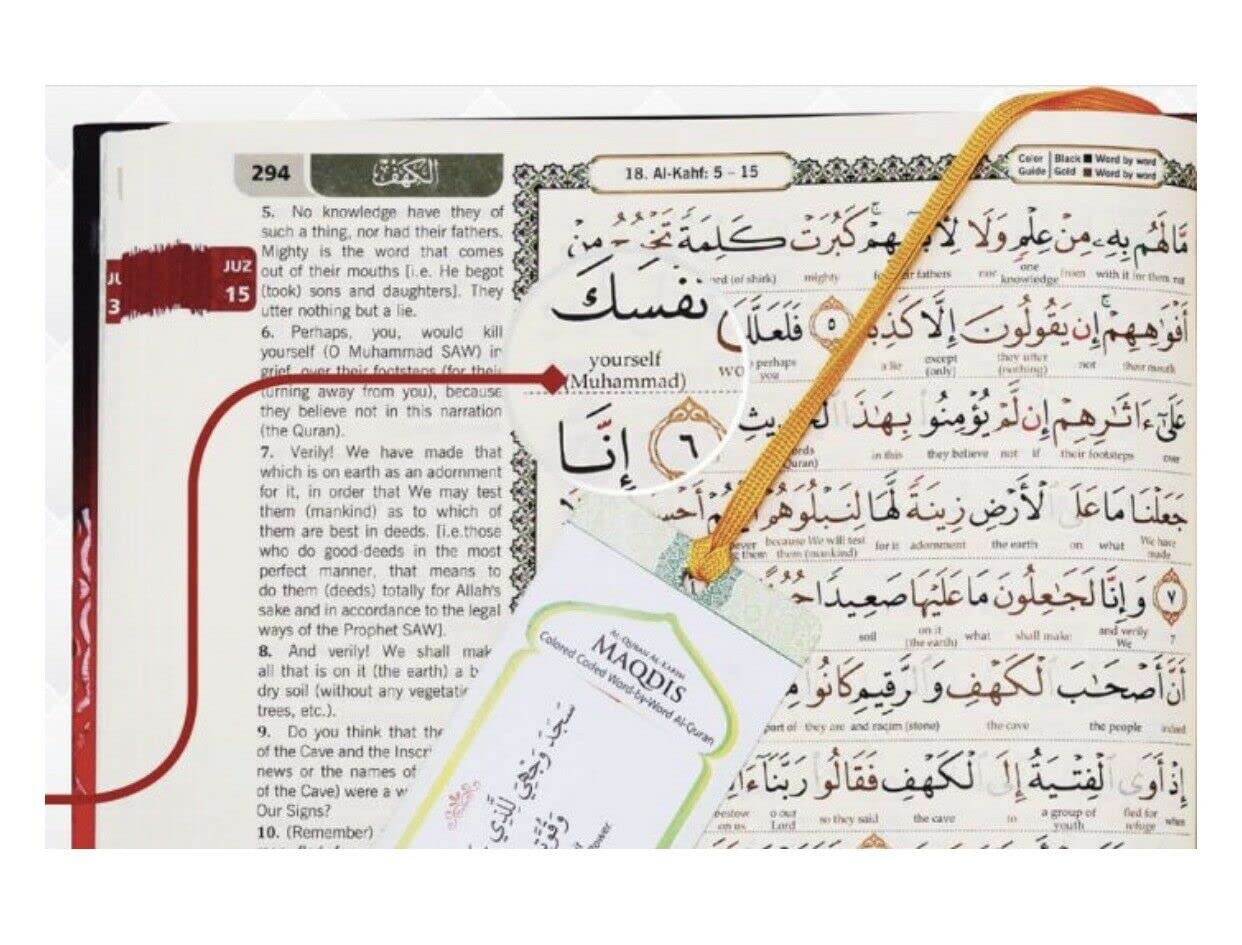 294
الكهف
18. Al-Kahf: 5 - 15
Color Guide
Black Word by word
Gold Word by word
JUZ
15
5. No knowledge have they of
such a thing, nor had their fathers.
Mighty is the word that comes
out of their mouths [i.e. He begot
(took) sons and daughters]. They
utter nothing but a lie.
6. Perhaps, you, would kill
yourself (O Muhammad SAW) in
grief, over their footsteps (for their
turning away from you), because
they believe not in this narration
(the Quran).
7. Verily! We have made that
which is on earth as an adornment
for it, in order that We may test
them (mankind) as to which of
them are best in deeds. [i.e.those
who do good-deeds in the most
perfect manner, that means to
do them (deeds) totally for Allah's
sake and in accordance to the legal
ways of the Prophet SAW].
8. And verily! We shall mak
all that is on it (the earth) a b
dry soil (without any vegetati
trees, etc.).
9. Do you think that the
of the Cave and the Inscri
news or the names of
of the Cave) were a w
Our Signs?
10. (Remember)
مَّا لَهُم بِهِۦ مِنْ عِلْمٍ وَلَا كَبُرَتْ كَلِمَةً تَخْرُجُ مِنْ
(of shirk) mighty fathers nor knowledge from with it for them not
أَفْوَٰهِهِمْ إِن يَقُولُونَ إِلَّا ٥ فَلَعَلَّكَ
perhaps you a lie except (only) they utter (nothing) not their mouth
نَفْسَكَ
yourself
(Muhammad)
عَلَىٰٓ ءَاثَٰرِهِمْ إِن لَّمْ يُؤْمِنُوا۟ بِهَٰذَا
in this they believe not if their footsteps over
٦ إِنَّا
جَعَلْنَا مَا عَلَى ٱلْأَرْضِ زِينَةً لَّهَا لِنَبْلُوَهُمْ
because We will test them (mankind) for it adornment the earth on what We have made
٧ وَإِنَّا لَجَٰعِلُونَ مَا عَلَيْهَا صَعِيدًا
soil on it (the earth) what shall make and verily We 7
أَنَّ أَصْحَٰبَ ٱلْكَهْفِ وَٱلرَّقِيمِ كَانُوا۟
part of they are and raqim (stone) the cave the people indeed
إِذْ أَوَى ٱلْفِتْيَةُ إِلَى ٱلْكَهْفِ فَقَالُوا۟ رَبَّنَآ
bestow on us o our Lord so they said the cave to a group of youth fled for refuge when
AL-QURAN AL-KARIM
MAQDIS
Colored Coded Word-by-Word Al-Quran
سَجَدَ وَجْهِيَ لِلَّذِي